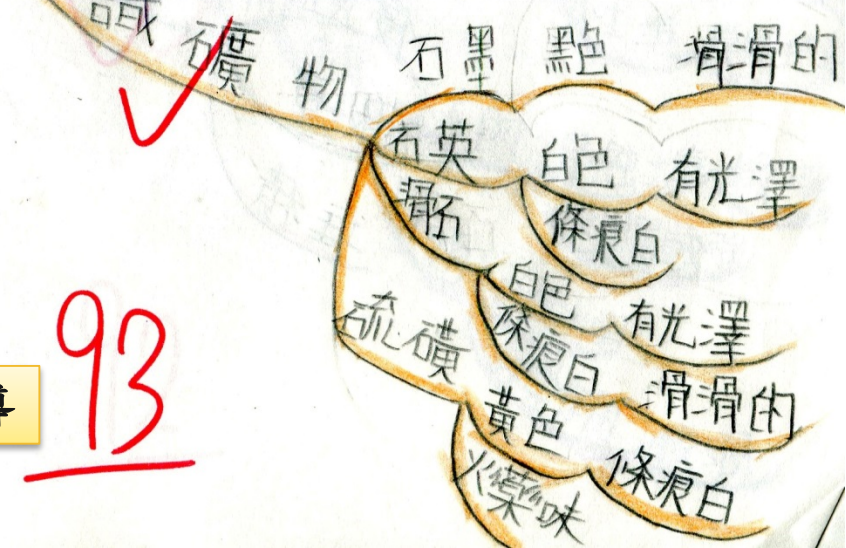 識礦物
石墨 黑色 滑滑的
石英 白色 有光澤
條痕白
滑石 白色 有光澤
條痕白 滑滑的
硫磺 黃色 條痕白
火藥味
93
導